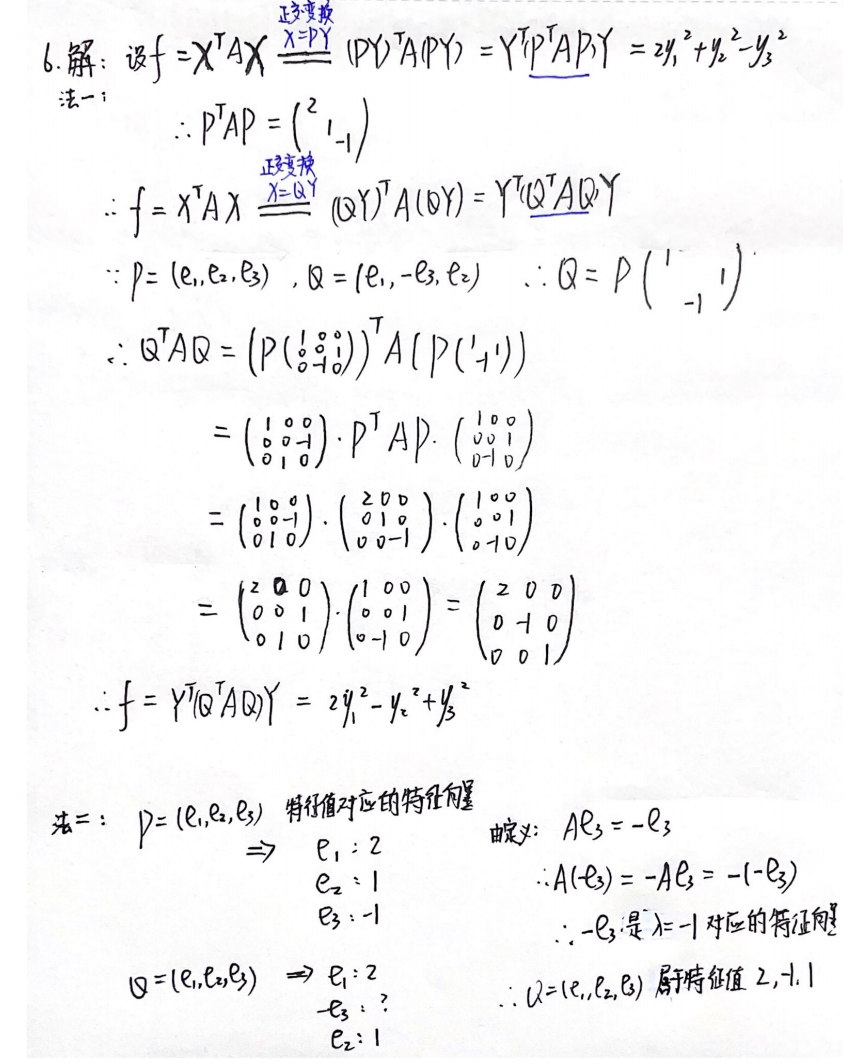 6.解: 设f=XᵀAX 正交变换 X=PY (PY)ᵀA(PY) = Yᵀ(PᵀAP)Y = 2y₁²+y₂²-y₃²
法一:
∴ PᵀAP = (2 1 -1)
∴ f = XᵀAX 正交变换 X=QY (QY)ᵀA(QY) = Yᵀ(QᵀAQ)Y
∵ P=(e₁,e₂,e₃), Q=(e₁,-e₃,e₂) ∴ Q = P(1 1 -1)
∴ QᵀAQ = (P(1 0 0 0 0 1 0 -1 0))ᵀA(P(1 -1 1))
= (1 0 0 0 0 -1 0 1 0)·PᵀAP·(1 0 0 0 0 1 0 -1 0)
= (1 0 0 0 0 -1 0 1 0)·(2 0 0 0 1 0 0 0 -1)·(1 0 0 0 0 1 0 -1 0)
= (2 0 0 0 0 1 0 1 0)·(1 0 0 0 0 1 0 -1 0) = (2 0 0 0 -1 0 0 0 1)
∴ f = Yᵀ(QᵀAQ)Y = 2y₁²-y₂²+y₃²
法二: P=(e₁,e₂,e₃) 特征值对应的特征向量
⇒ e₁:2
e₂:1
e₃:-1
Q=(e₁,e₂,e₃) ⇒ e₁:2
-e₃:?
e₂:1
由定义: Ae₃=-e₃
∴A(-e₃) = -Ae₃ = -(-e₃)
∴ -e₃是λ=-1对应的特征向量
∴ Q=(e₁,e₂,e₃) 属于特征值 2,-1,1